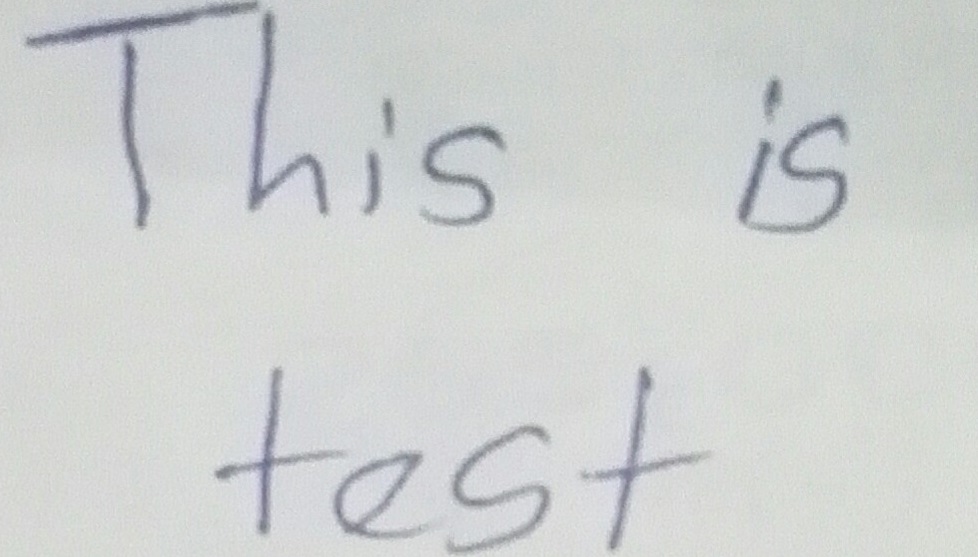 This is
test